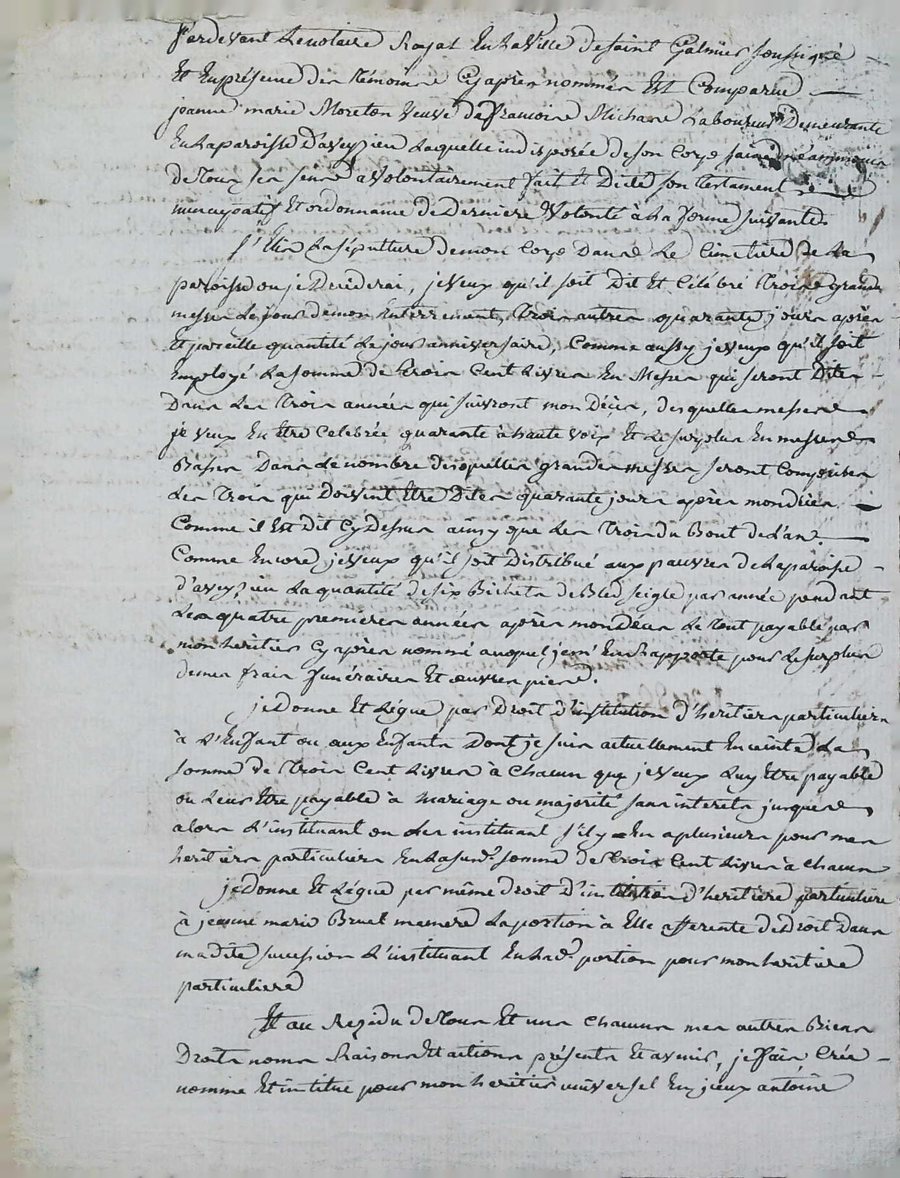 Pardevant Le notaire Royal En La Ville de saint Galmier soussigné
Et En présence des témoins Cy après nommés Est Comparue
jeanne marie Moreton veuve de françois Michard Laboureur Demeurante
En La paroisse D'aveyzieu Laquelle indisposée de son Corps saine néammoins
de Tous ses sens a Volontairement fait Et Dicté son testament
nuncupatif Et ordonnance de Derniere Volonté à La forme suivante
j'Elis La sépulture de mon Corps Dans Le Cimetiere de La
paroisse ou je Décéderai, je Veux qu'il soit Dit Et Célébré Trois grandes
messes Le jour de mon Enterrement, Trois autres quarante jours après
Et pareille quantité Le jour anniversaire, Comme aussy je veux qu'il soit
Employé La somme de Trois Cent Livres En Messes qui seront Dites
Dans Les Trois années qui suivront mon Décès, desquelles messes
je veux En être Celebrée quarante à haute voix Et Le surplus En messes
Basses Dans Le nombre desquelles grandes messes seront Comprises
Les Trois qui Doivent Être Dites quarante jours après mon décès
Comme il Est Dit Cy Dessus ainsy que Les Trois du Bout de L'an.
Comme Encore je veux qu'il soit Distribué aux pauvres de La paroisse
d'aveyzieu La quantité de six Bichets de Bled seigle par année pendant
Les quatre premieres années après mon décès Le tout payable par
mon heritier Cy après nommé auquel je m'En Rapporte pour Le surplus
de mes frais funéraires Et œuvres pies.
je Donne Et Légue par Droit D'institution d'heritiers particuliers
à L'Enfant ou aux Enfants Dont je suis actuellement Enceinte La
somme de Trois Cent Livres à Chacun que je veux Luy Être payable
ou Leur Être payable à mariage ou majorité sans interets jusques
alors L'instituant ou Les instituant s'il y En a plusieurs pour mes
heritiers particuliers En La susd.e somme de Trois Cent Livres à Chacun
je Donne Et Légue par même droit D'institution d'heritiere particuliere
à jeanne marie Bruel ma mere La portion à Elle afferente de Droit Dans
ma dite succession L'instituant En Lad.e portion pour mon heritiere
particuliere
Et au Résidu de Tous Et uns Chacuns mes autres Biens
Droits noms Raisons Et actions présents Et avenir, je fais Crée
nomme Et institue pour mon heritier universel antoine